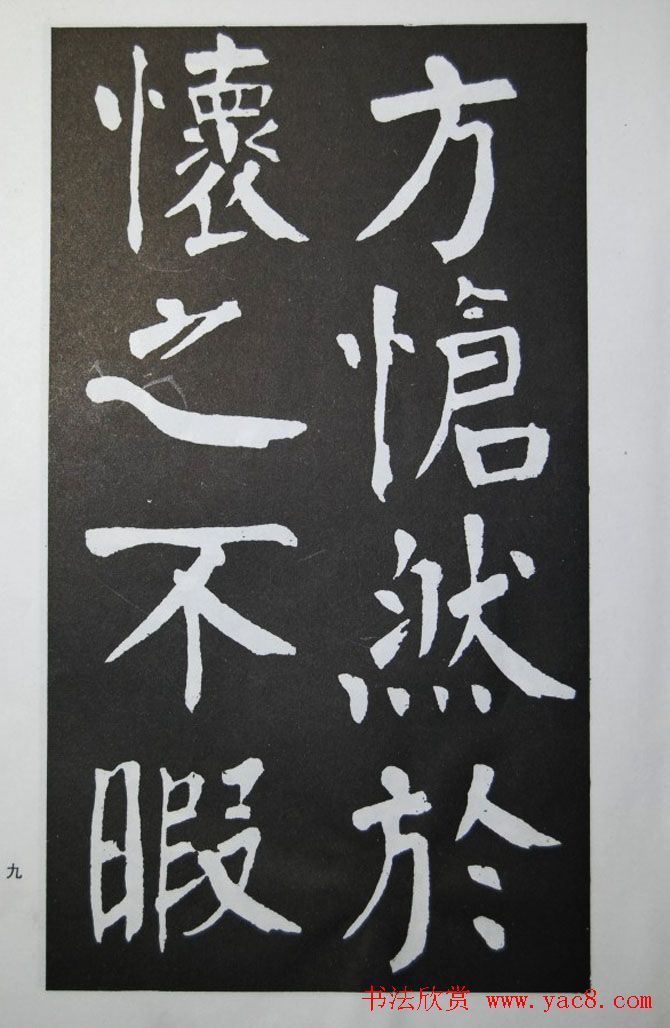 方愴然於
懷之不暇
九
书法欣赏 www.yac8.com